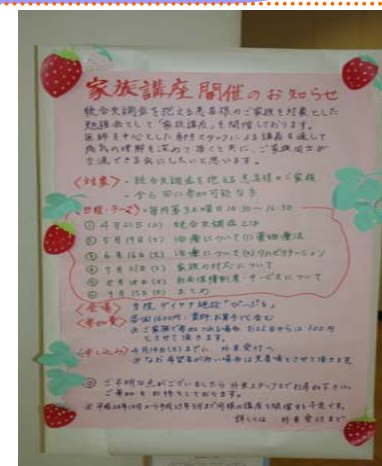 家族講座開催のお知らせ
統合失調症を抱える患者様のご家族を対象とした
勉強会として「家族講座」を開催しております。
医師を中心とした専門スタッフによる講義を通して
病気の理解を深めて頂くと共に、ご家族同士が
交流できる会にしたいと思います。
〈対象〉・統合失調症を抱える患者様のご家族
・全6回に参加可能な方
〈日程・テーマ〉・毎月第3土曜日
① 4月21日(土) 統合失調症とは
② 5月19日(土) 治療について(1)薬物療法
③ 6月16日(土) 治療について(2)リハビリテーション
④ 7月21日(土) 家族の対応について
⑤ 8月18日(土) 社会保障制度・サービスについて
⑥ 9月15日(土) まとめ
〈会場〉 当院デイケア施設
〈参加費〉
※ご家族で参加される場合、お2人目からは
とさせて頂きます。
〈申し込み〉 4月14日(土)までに 外来受付へ
※なお希望者が多い場合は先着順とさせて頂きます
ご不明な点がございましたら 外来スタッフまでお尋ね下さい。
ご参加をお待ちしております。
詳しくは 外来受付まで